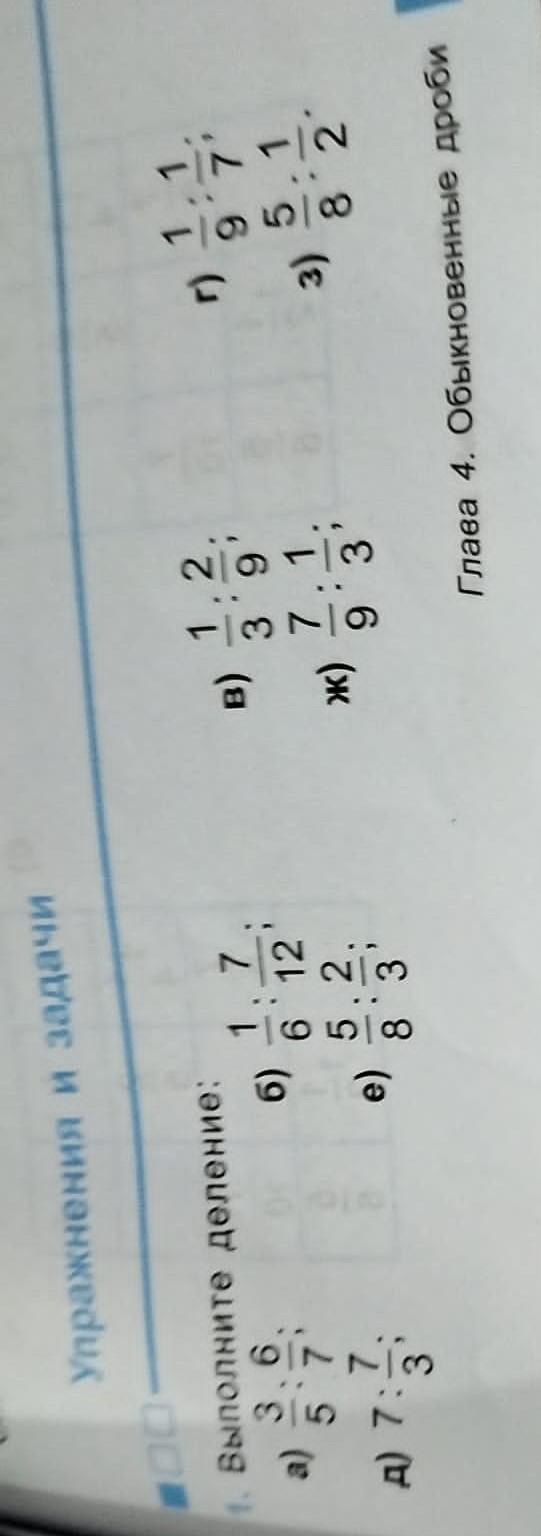 Упражнения и задачи
1. Выполните деление:
а) 3/5 : 6/7; б) 1/6 : 7/12; в) 1/3 : 2/9; г) 1/9 : 1/7;
д) 7 : 7/3; е) 5/8 : 2/3; ж) 7/9 : 1/3; з) 5/8 : 1/2.
Глава 4. Обыкновенные дроби